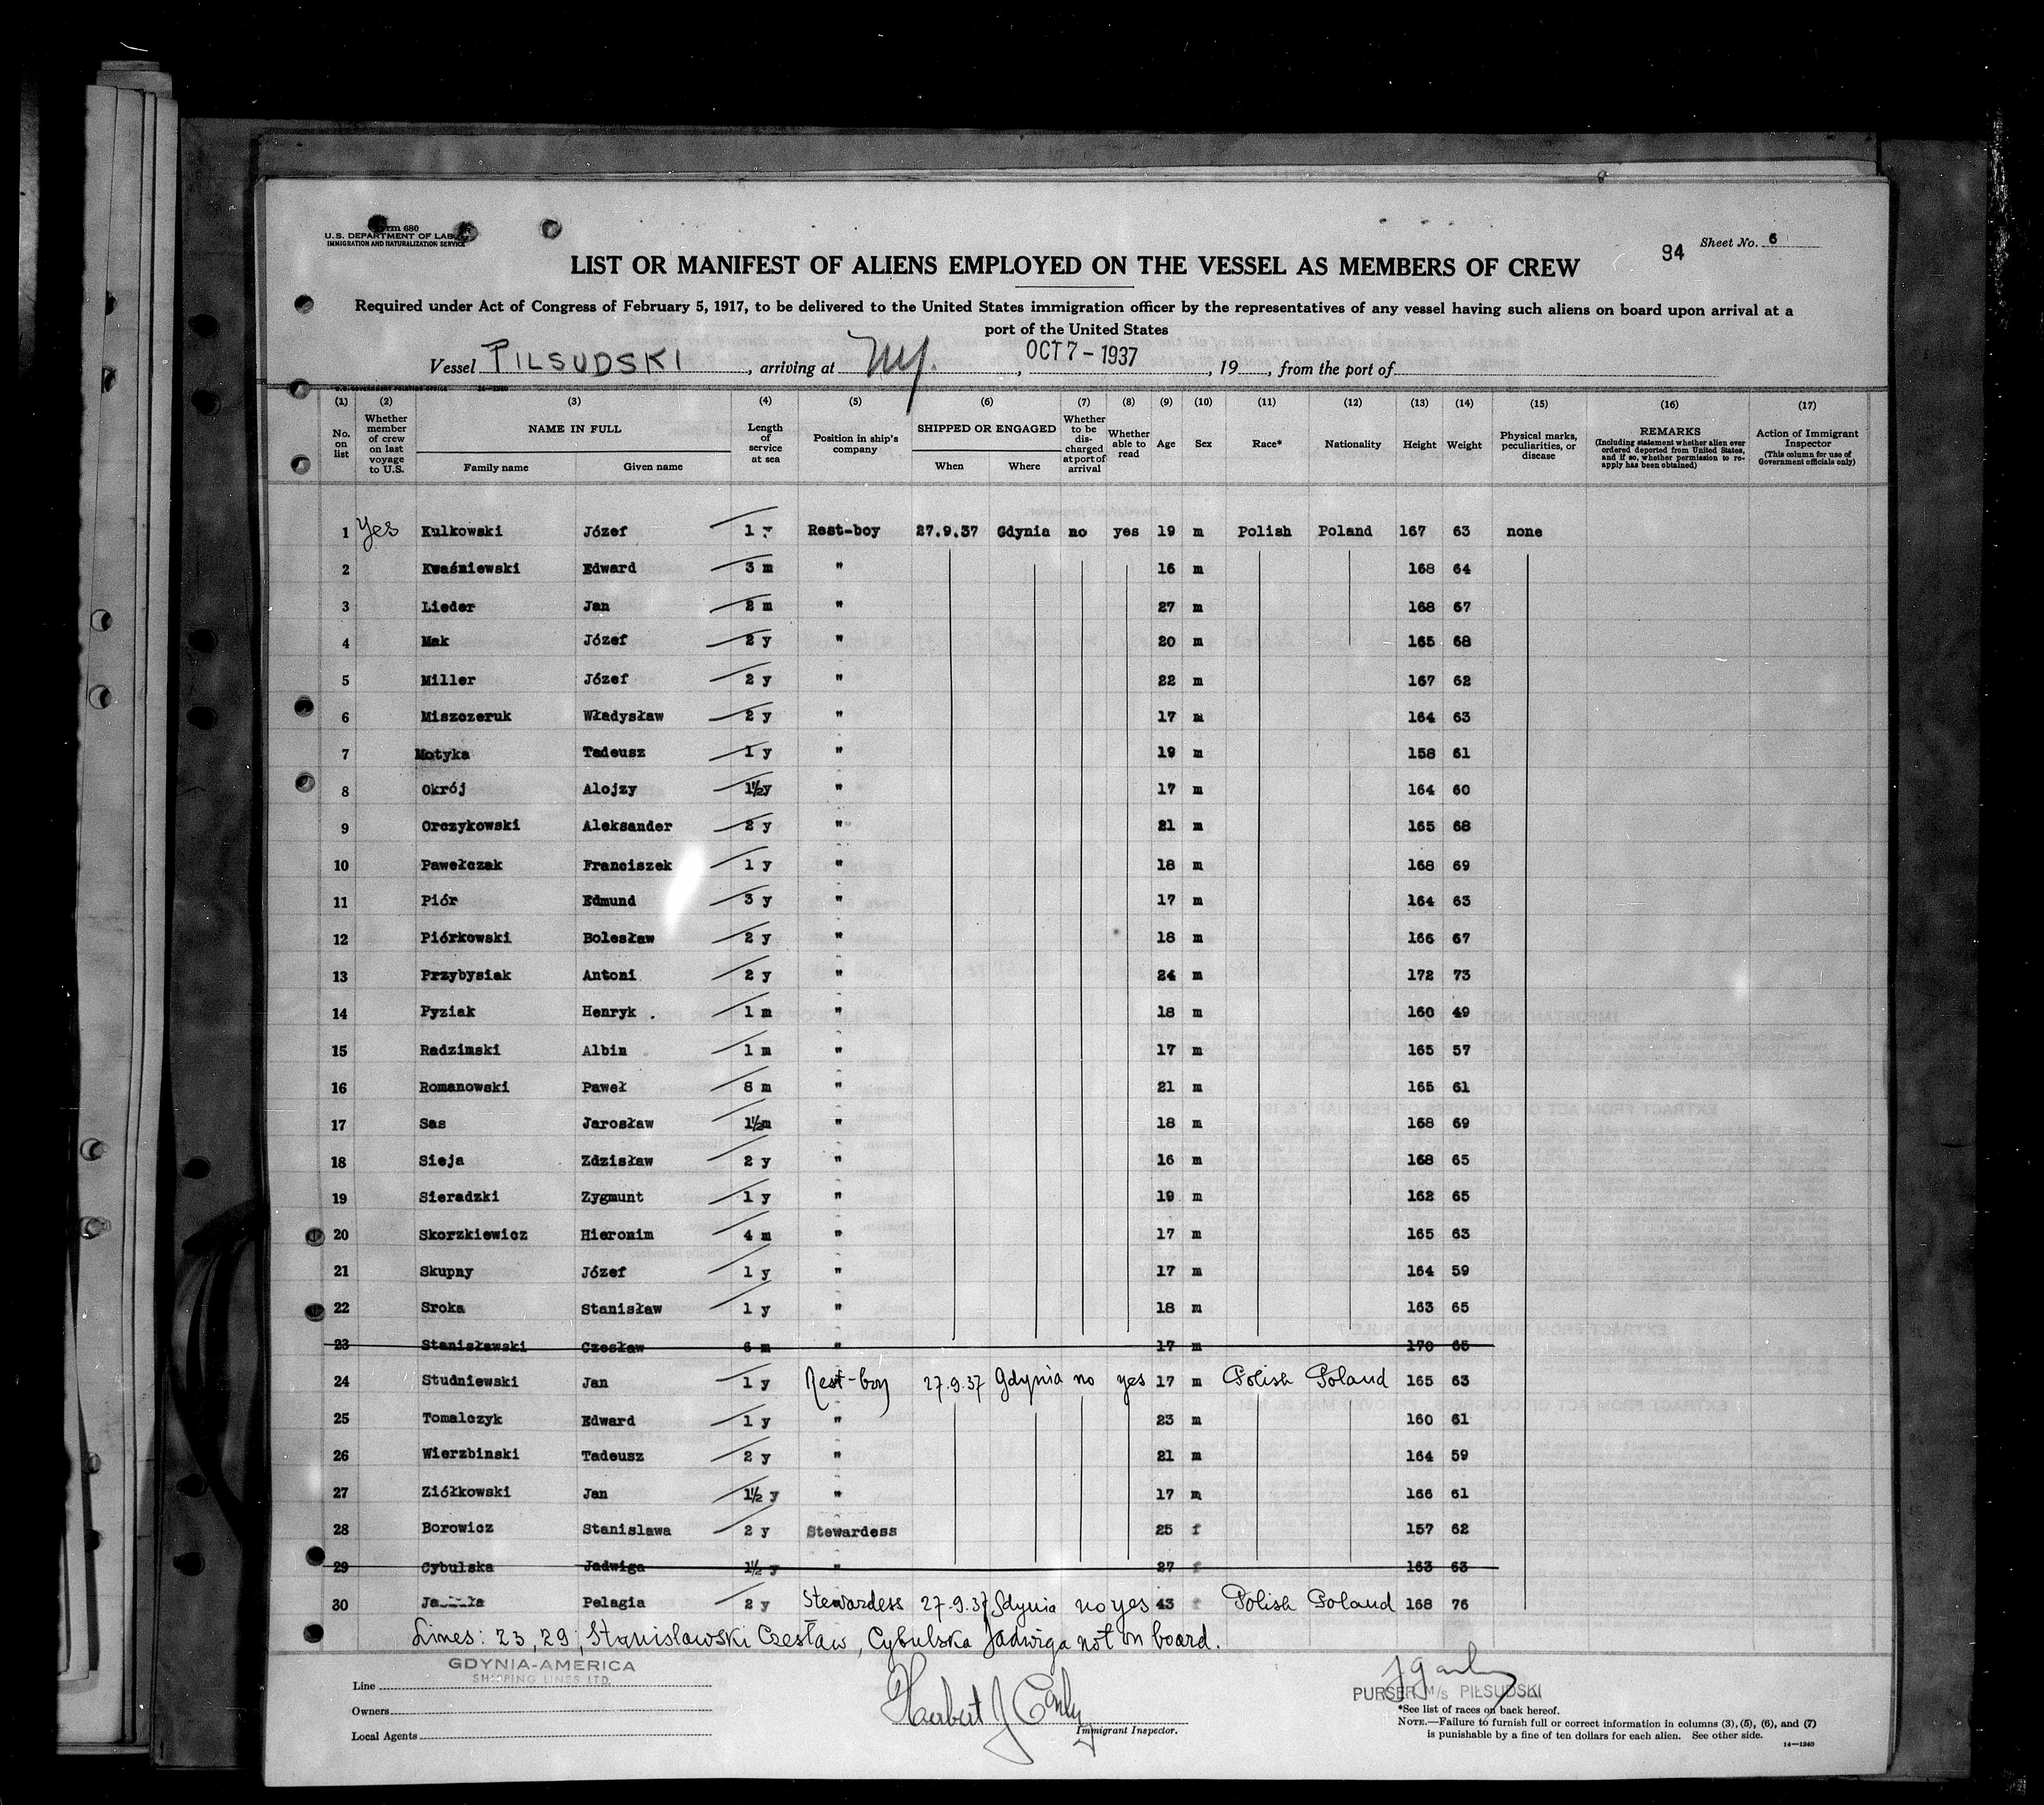 Form 680
U.S. DEPARTMENT OF LABOR
IMMIGRATION AND NATURALIZATION SERVICE
94 Sheet No. 6
LIST OR MANIFEST OF ALIENS EMPLOYED ON THE VESSEL AS MEMBERS OF CREW
Required under Act of Congress of February 5, 1917, to be delivered to the United States immigration officer by the representatives of any vessel having such aliens on board upon arrival at a
port of the United States
Vessel PILSUDSKI, arriving at NY., OCT 7 - 1937, 19, from the port of
(1) (2) (3) (4) (5) (6) (7) (8) (9) (10) (11) (12) (13) (14) (15) (16) (17)
No. on list Whether member of crew on last voyage to U.S. NAME IN FULL Family name Given name Length of service at sea Position in ship's company SHIPPED OR ENGAGED When Where Whether to be discharged at port of arrival Whether able to read Age Sex Race* Nationality Height Weight Physical marks, peculiarities, or disease REMARKS (Including statement whether alien ever ordered deported from United States, and if so, whether permission to reapply has been obtained) Action of Immigrant Inspector (This column for use of Government officials only)
1 Yes Kulkowski Józef 1 y Rest-boy 27.9.37 Gdynia no yes 19 m Polish Poland 167 63 none
2 Kwaśniewski Edward 3 m " 16 m 168 64
3 Lieder Jan 2 m " 27 m 168 67
4 Mak Józef 2 y " 20 m 165 68
5 Miller Józef 2 y " 22 m 167 62
6 Miszczeruk Władysław 2 y " 17 m 164 63
7 Motyka Tadeusz 1 y " 19 m 158 61
8 Okrój Alojzy 1½y " 17 m 164 60
9 Orczykowski Aleksander 2 y " 21 m 165 68
10 Pawełczak Franciszek 1 y " 18 m 168 69
11 Piór Edmund 3 y " 17 m 164 63
12 Piórkowski Bolesław 2 y " 18 m 166 67
13 Przybysiak Antoni 2 y " 24 m 172 73
14 Pyziak Henryk 1 m " 18 m 160 49
15 Radzimski Albin 1 m " 17 m 165 57
16 Romanowski Paweł 8 m " 21 m 165 61
17 Sas Jarosław 1½m " 18 m 168 69
18 Sieja Zdzisław 2 y " 16 m 168 65
19 Sieradzki Zygmunt 1 y " 19 m 162 65
20 Skorzkiewicz Hieronim 4 m " 17 m 165 63
21 Skupny Józef 1 y " 17 m 164 59
22 Sroka Stanisław 1 y " 18 m 163 65
23 Stanisławski Czesław 6 m " 17 m 170 65
24 Studniewski Jan 1 y Rest-boy 27.9.37 Gdynia no yes 17 m Polish Poland 165 63
25 Tomalczyk Edward 1 y " 23 m 160 61
26 Wierzbinski Tadeusz 2 y " 21 m 164 59
27 Ziółkowski Jan 1½ y " 17 m 166 61
28 Borowicz Stanislawa 2 y Stewardess 25 f 157 62
29 Cybulska Jadwiga 1½ y " 27 f 163 63
30 Pelagia 2 y Stewardess 27.9.37 Gdynia no yes 43 f Polish Poland 168 76
Lines: 23, 29; Stanisławski Czesław, Cybulska Jadwiga not on board.
GDYNIA-AMERICA
SHIPPING LINES LTD.
Line
Owners
Local Agents
Herbert J
Immigrant Inspector.
PURSER M/S PIŁSUDSKI
*See list of races on back hereof.
NOTE.—Failure to furnish full or correct information in columns (3), (5), (6), and (7)
is punishable by a fine of ten dollars for each alien. See other side.
14—1240